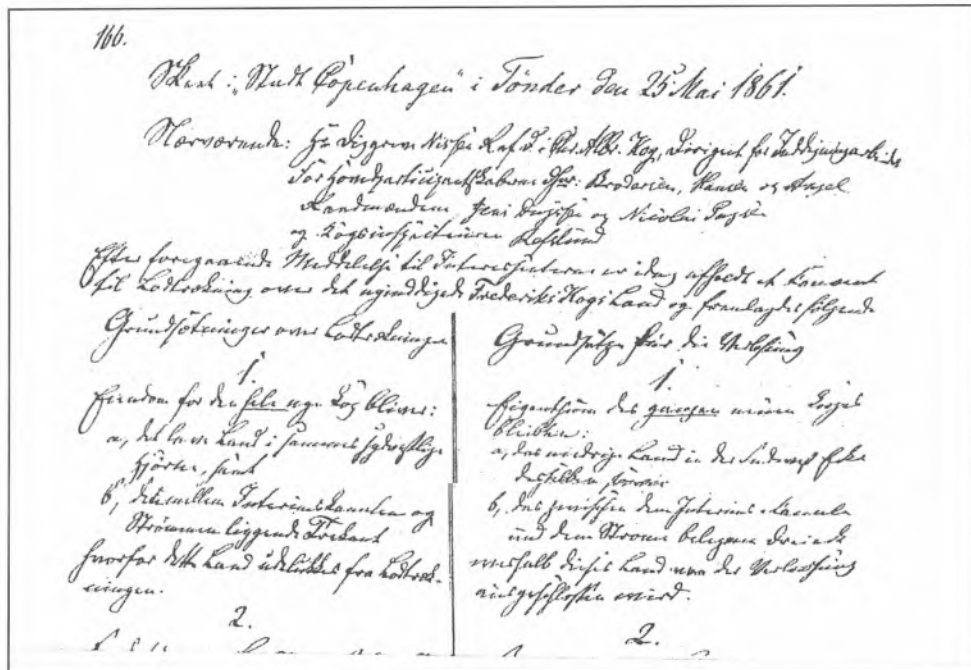 166.
Skeet i „Stadt Copenhagen“ i Tönder den 25 Mai 1861.
Nærværende: Hr Diggreve Nissen R. af D. i Chr. Albr. Kog, Dirigent for Inddigningsarbeidet
For Hovedparticipantskaberne DHrr: Brodersen, Hansen og Angel
Landmændene Jens og Nicolai
og Kogsinspecteuren
Efter foregaaende Meddelelse til Interessenterne er idag afholdt et Convent
til Lodtrækning over det nyinddigede Frederiks Kogs Land og fremlagdes følgende
Grundsætninger over Lodtrækningen
1.
Eiendom for den hele nye Kog bliver:
a, det lave Land i sammes sydvestlige
Hjörne, samt
b, det mellem Interimskanalen og
Strömmen liggende Trekant
hvorfor dette Land udelukkes fra Lodtræk-
ningen.
2.
Grundsätze für die Verlosung
1.
Eigenthum des ganzen neuen Kooges
bleiben:
a, das niedrige Land in der Südwest Ecke
desselben, sowie
b, das zwischen dem Interims-Canale
und dem Strome belegene Dreieck
weshalb dieses Land von der Verloosung
ausgeschlossen wird.
2.